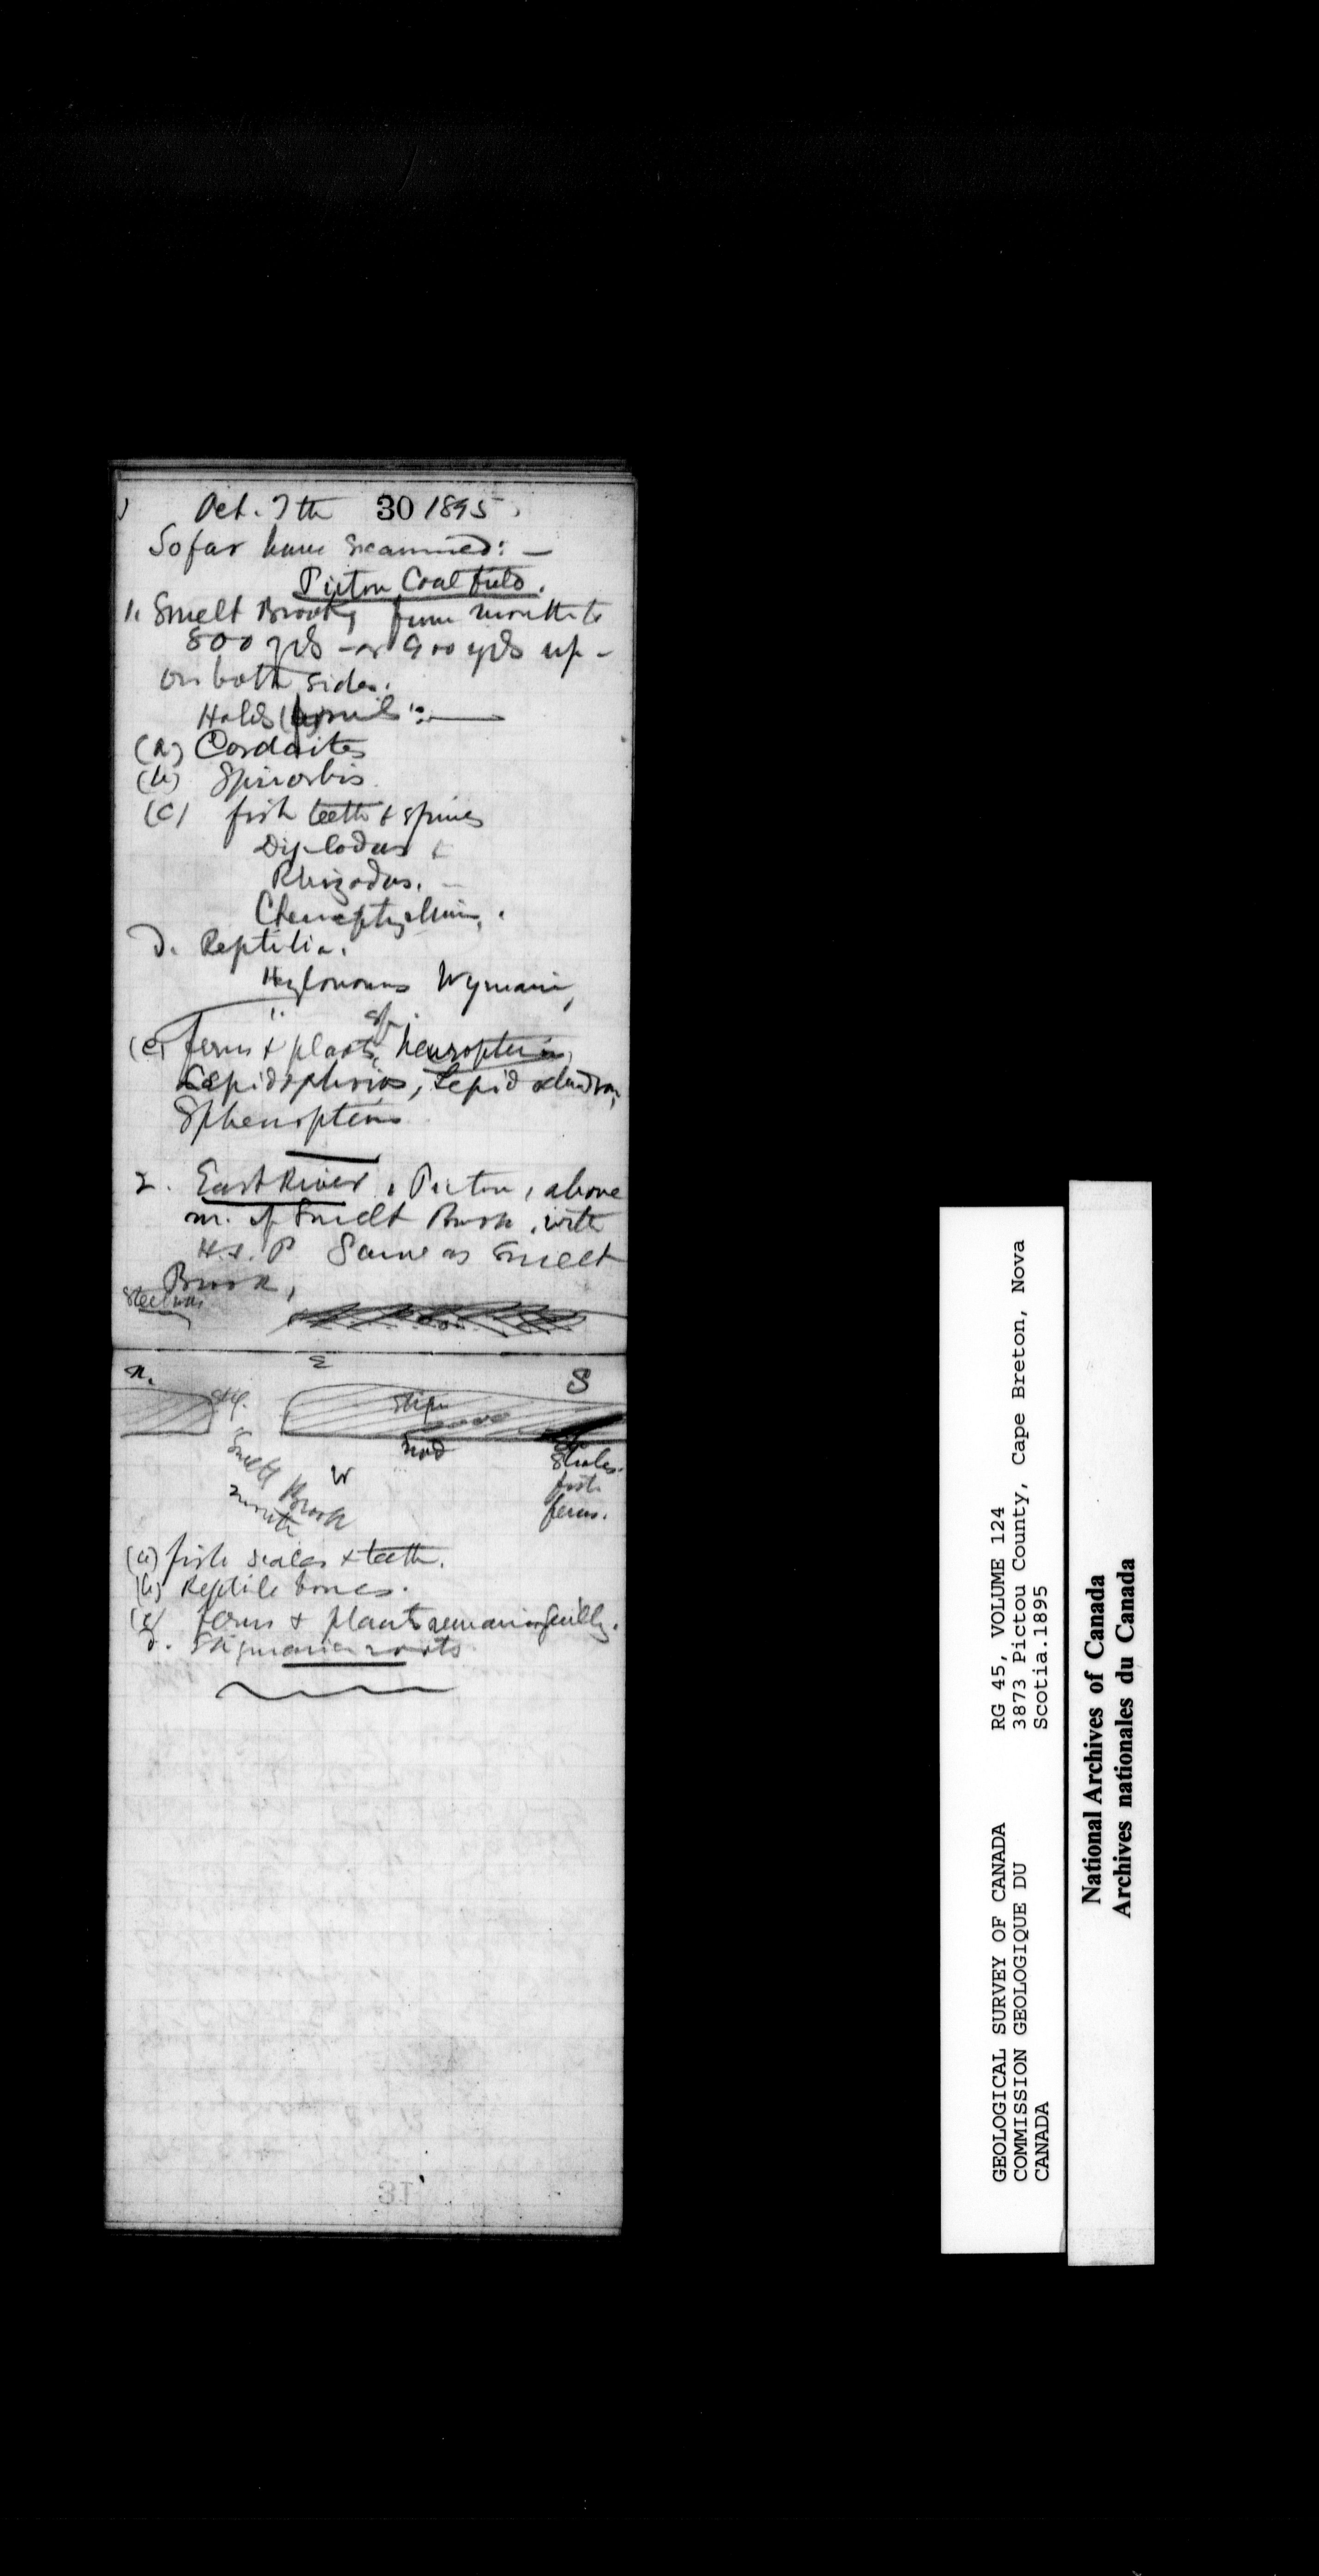 Oct. 7th 30 1895
So far have examined: —
Pictou Coal field.
1. Smelt Brook, from mouth to
800 yds - or 900 yds up -
on both sides.
Holds fossils: —
(a) Cordaites
(b) Spirorbis
(c) fish teeth & spines
Diplodus &
Rhizodus. —
Ctenoptychius.
d. Reptilia.
Hylonomus Wymani,
" sp.
(e) ferns & plants, Neuropteris,
Lepidophloios, Lepidodendron,
Sphenopteris
2. East River, Pictou, above
m. of Smelt Brook, with
H.S.P Same as Smelt
Brook,
N. E S
Stig.
W
Shales.
fish
ferns.
Smelt Brook
mouth
(a) fish scales & teeth.
(b) Reptile bones.
(c) ferns & plants remains
d. Stigmaria roots
31
GEOLOGICAL SURVEY OF CANADA
COMMISSION GEOLOGIQUE DU
CANADA
RG 45, VOLUME 124
3873 Pictou County, Cape Breton, Nova
Scotia.1895
National Archives of Canada
Archives nationales du Canada